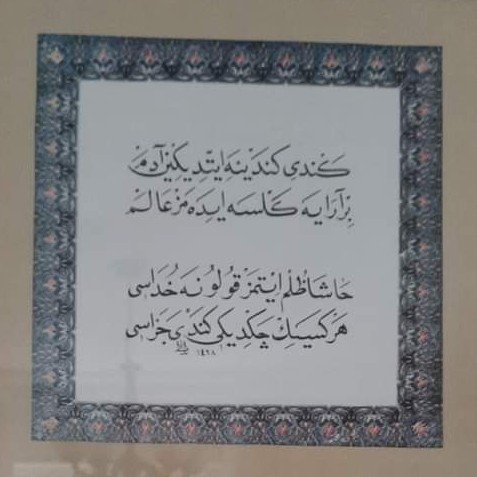 كندی كندینه ایتدیكین آدم
بر آرایه كلسه ایده مز عالم
حاشا ظلم ایتمز قولونه خداسی
هر كسیك چكدیكی كندی جزاسی
١٤٢٨